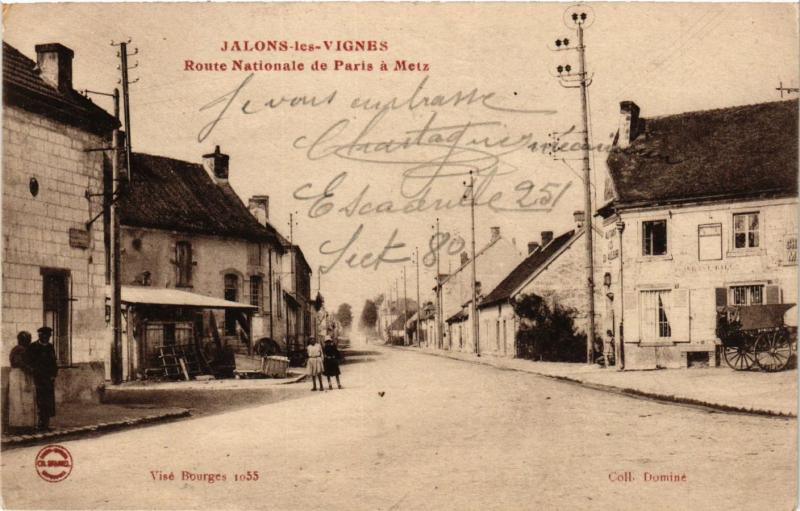 JALONS-les-VIGNES
Route Nationale de Paris à Metz
Je vous embrasse
Chastagner mécanicien
Escadrille 251
Sect 80
Visé Bourges 1055
Coll. Dominé